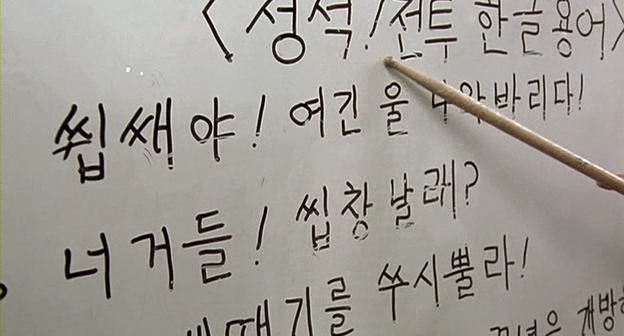 <성석! 전투 한글용어>
씹쌔야! 여긴 울 나와바리다!
너거들! 씹창 날래?
기를 쑤시뿔라!
개방